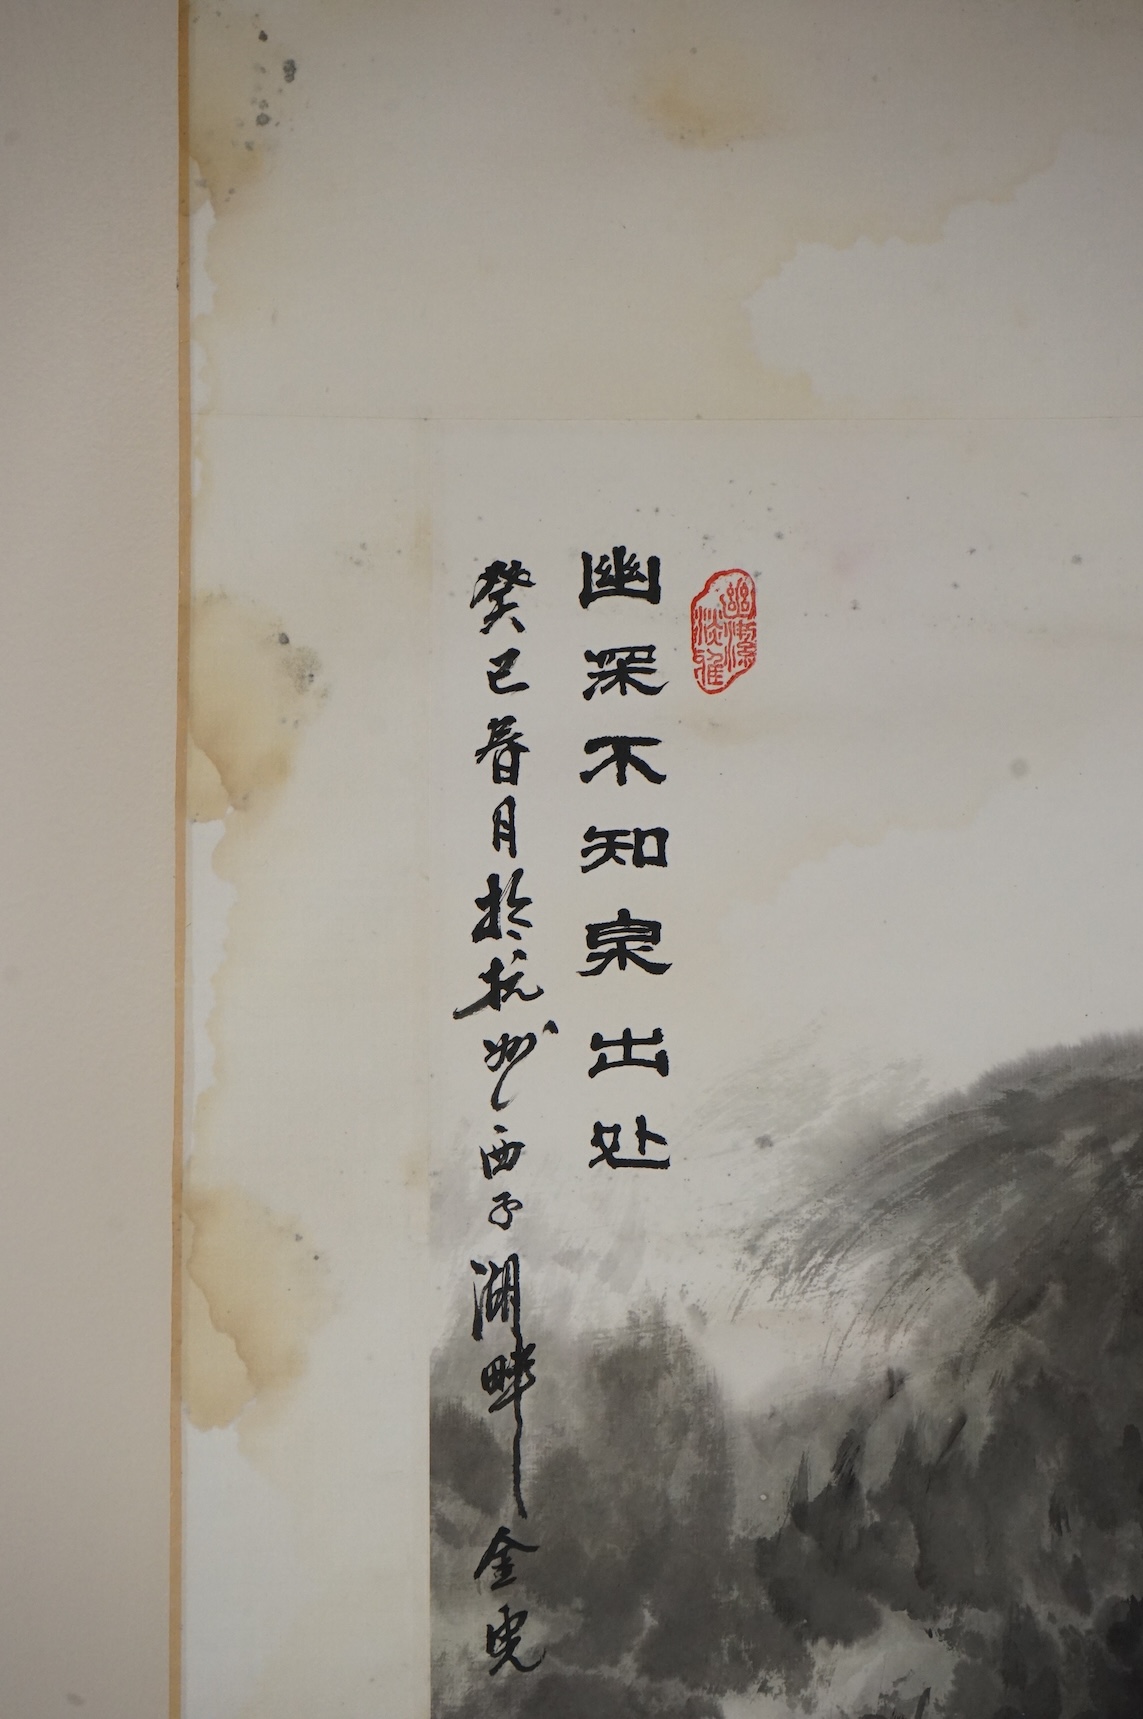 幽
淡雅
幽深不知泉出处
癸巳春月於杭州西子湖畔 金